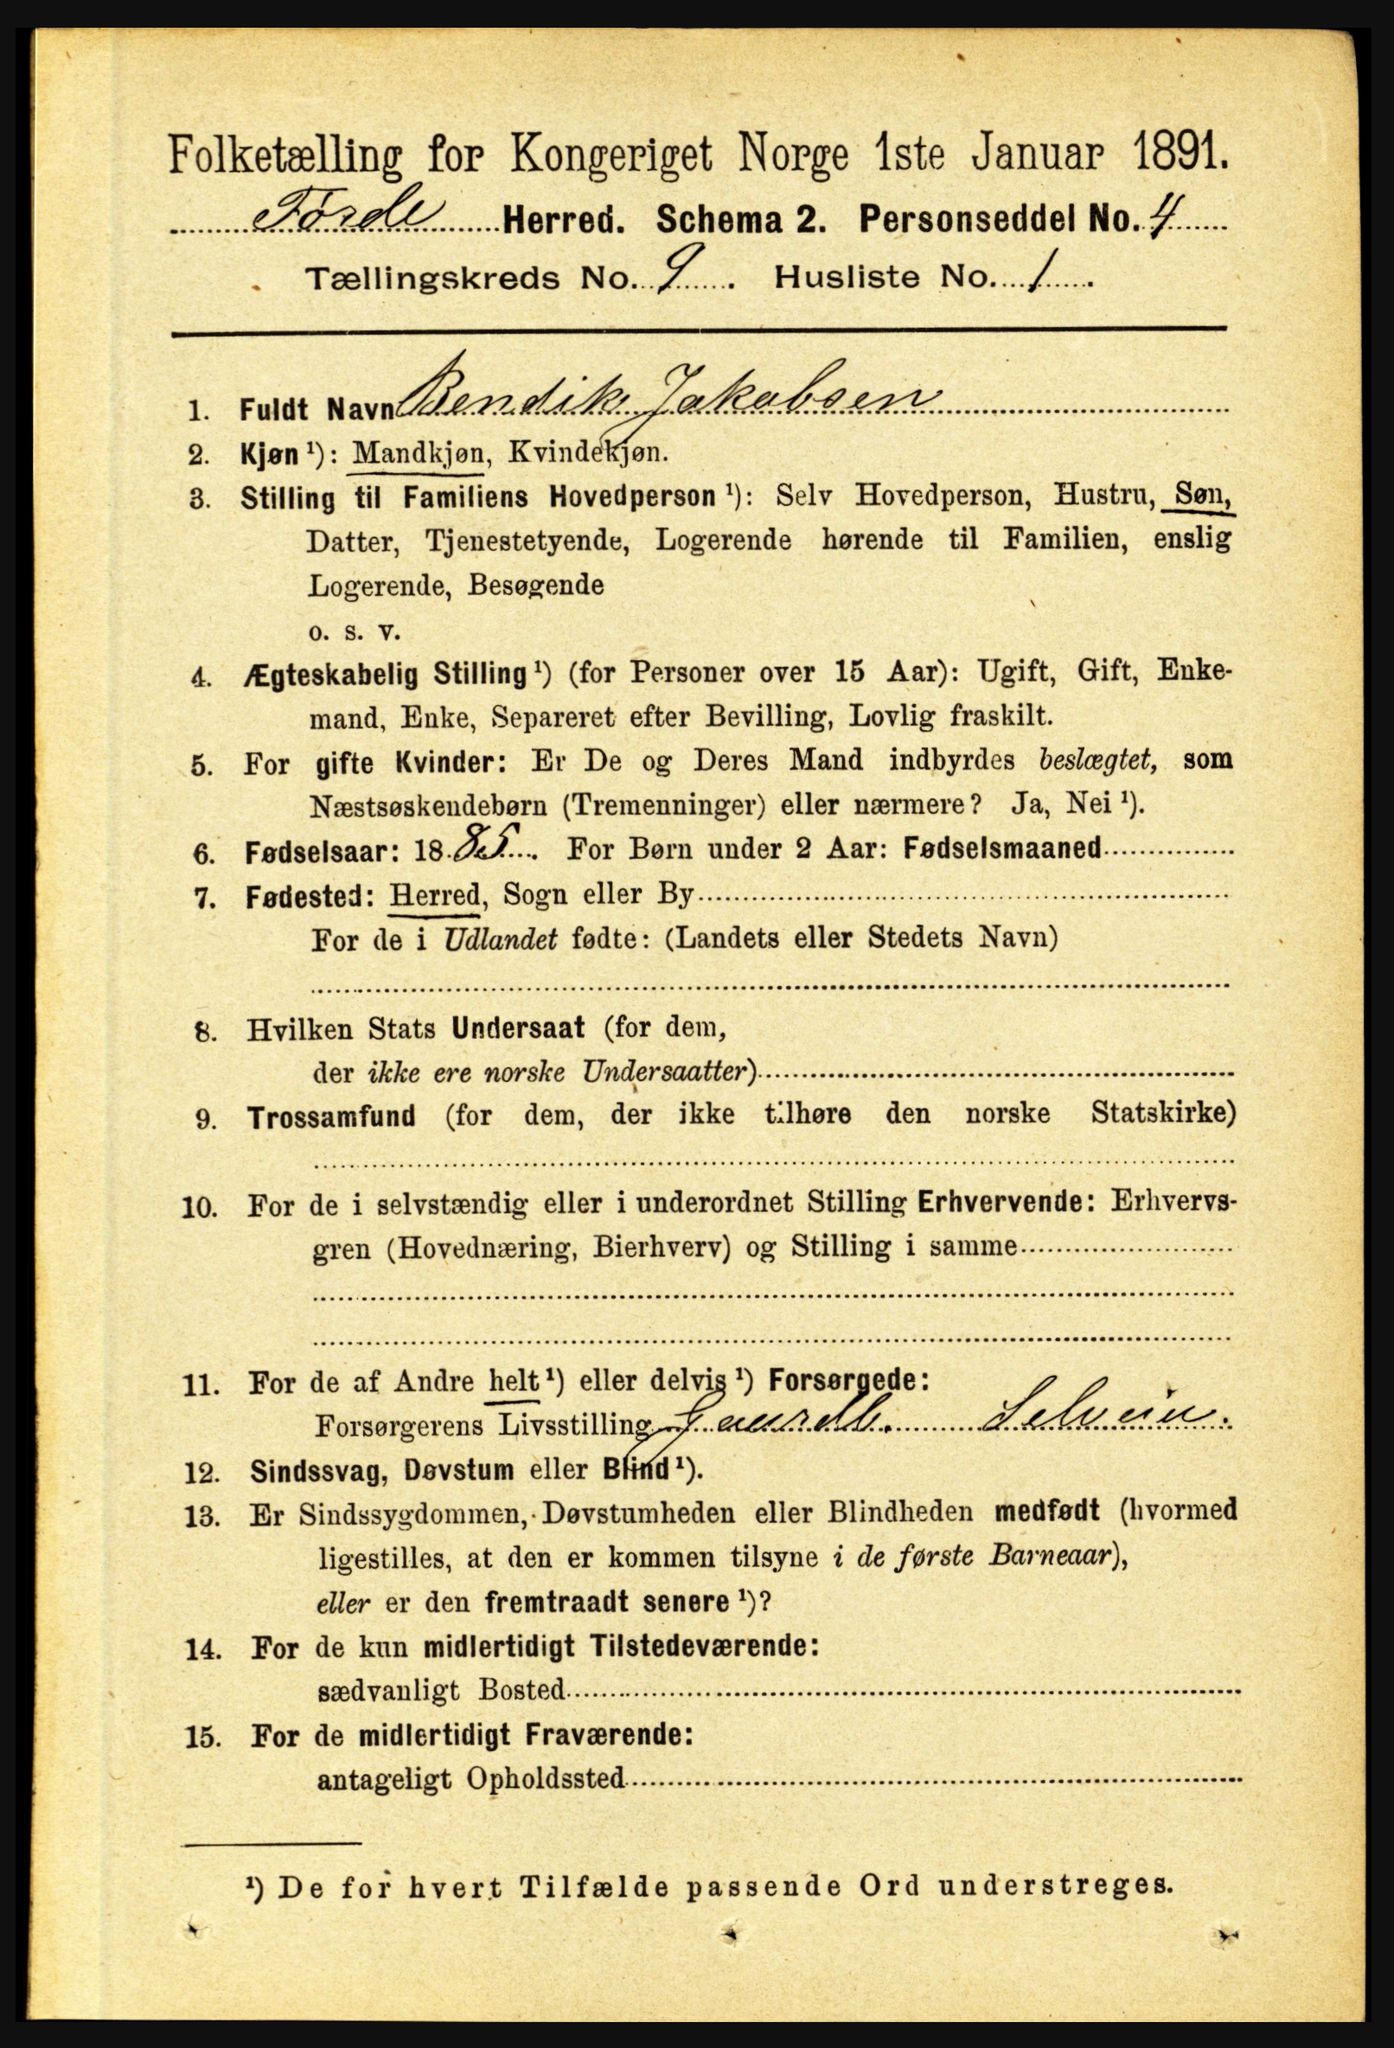 Folketælling for Kongeriget Norge 1ste Januar 1891.
Førde Herred. Schema 2. Personseddel No. 4
Tællingskreds No. 9. Husliste No. 1.
1. Fuldt Navn Bendik Jakobsen
2. Kjøn ¹): Mandkjøn, Kvindekjøn.
3. Stilling til Familiens Hovedperson ¹): Selv Hovedperson, Hustru, Søn,
Datter, Tjenestetyende, Logerende hørende til Familien, enslig
Logerende, Besøgende
o. s. v.
4. Ægteskabelig Stilling ¹) (for Personer over 15 Aar): Ugift, Gift, Enke-
mand, Enke, Separeret efter Bevilling, Lovlig fraskilt.
5. For gifte Kvinder: Er De og Deres Mand indbyrdes beslægtet, som
Næstsøskendebørn (Tremenninger) eller nærmere? Ja, Nei ¹).
6. Fødselsaar: 1885. For Børn under 2 Aar: Fødselsmaaned
7. Fødested: Herred, Sogn eller By
For de i Udlandet fødte: (Landets eller Stedets Navn)
8. Hvilken Stats Undersaat (for dem,
der ikke ere norske Undersaatter)
9. Trossamfund (for dem, der ikke tilhøre den norske Statskirke)
10. For de i selvstændig eller i underordnet Stilling Erhvervende: Erhvervs-
gren (Hovednæring, Bierhverv) og Stilling i samme
11. For de af Andre helt ¹) eller delvis ¹) Forsørgede:
Forsørgerens Livsstilling Gaardb. Selveier.
12. Sindssvag, Døvstum eller Blind ¹).
13. Er Sindssygdommen, Døvstumheden eller Blindheden medfødt (hvormed
ligestilles, at den er kommen tilsyne i de første Barneaar),
eller er den fremtraadt senere ¹)?
14. For de kun midlertidigt Tilstedeværende:
sædvanligt Bosted
15. For de midlertidigt Fraværende:
antageligt Opholdssted
¹) De for hvert Tilfælde passende Ord understreges.